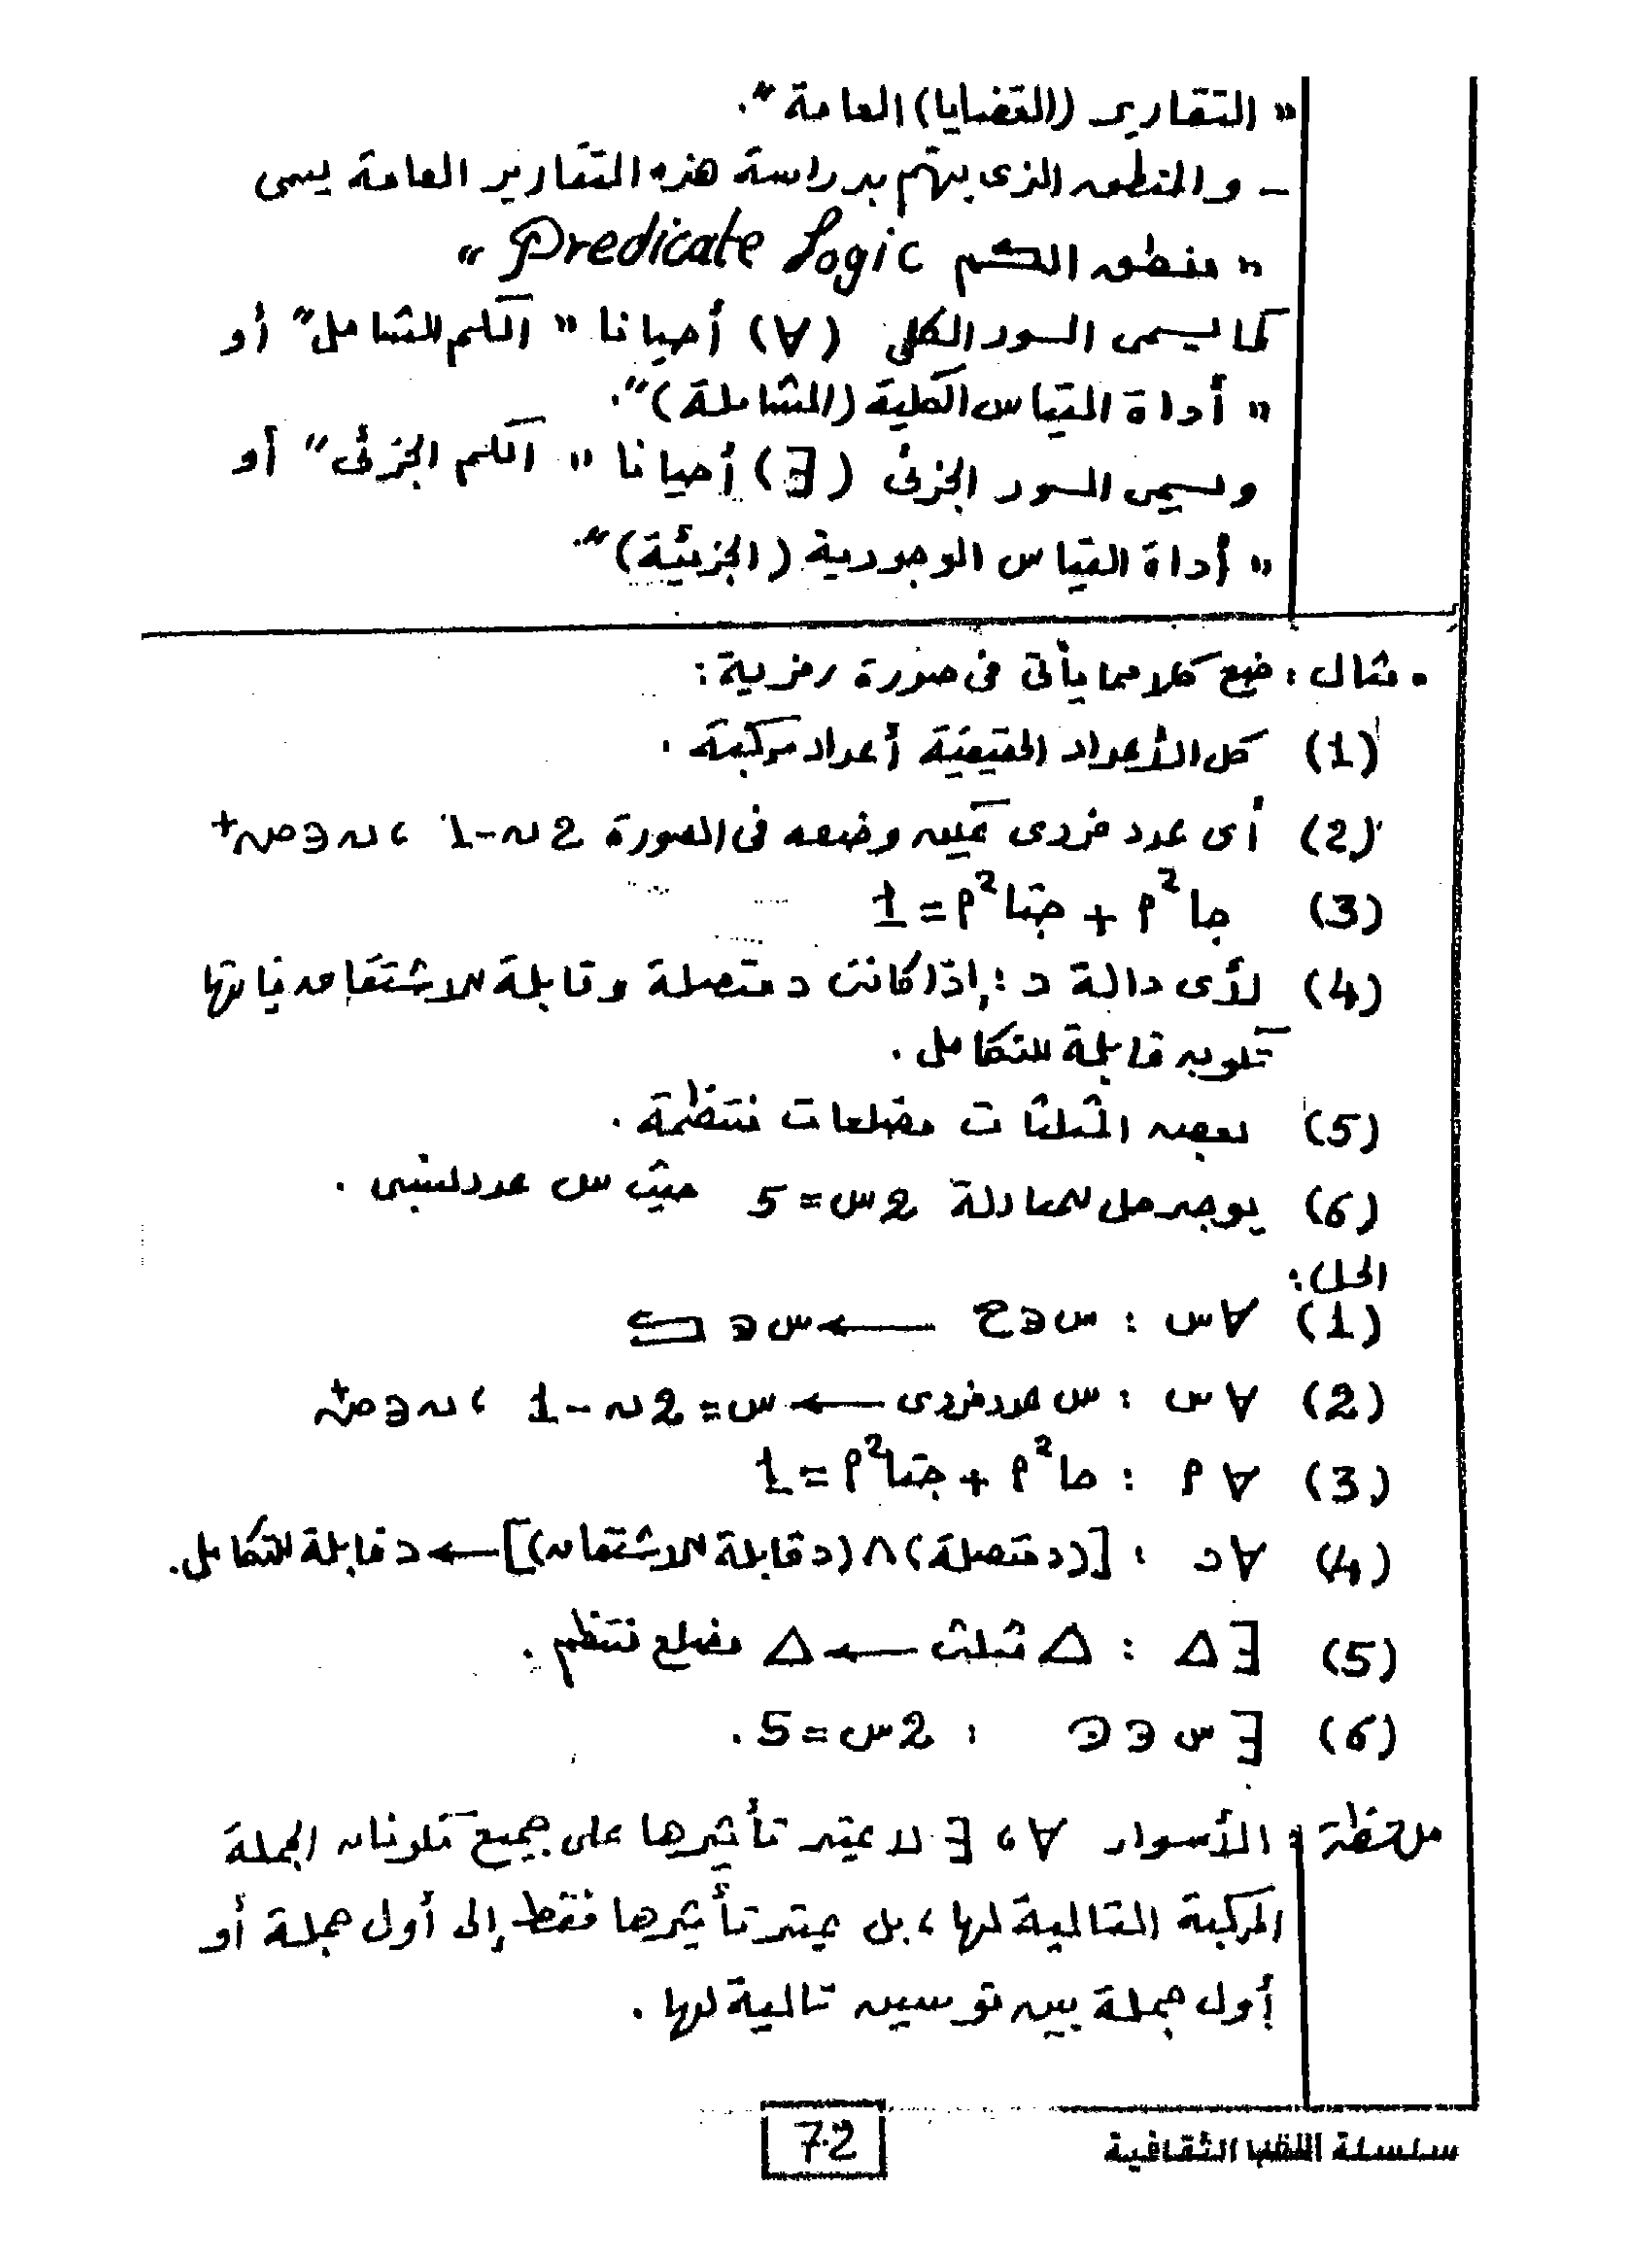 « التقارير (القضايا) العامة ».
- والمنطق الذى يهتم بدراسة هذه التقارير العامة يسمى
« منطق الحكم Predicate Logic »
كما يسمى السور الكلى (∀) أحيانا « الكم الشامل » أو
« أداة القياس الكلية (الشاملة) ».
ويسمى السور الجزئى (∃) أحيانا « الكم الجزئى » أو
« أداة القياس الوجودية (الجزئية) ».
• مثال : ضع كلا مما يأتى فى صورة رمزية :
(1) كل الأعداد الحقيقية أعداد مركبة .
(2) أى عدد فردى يمكن وضعه فى الصورة 2ن-1 ، ن∈ص+
(3) جا²م + جتا²م = 1
(4) لأى دالة د ؛ إذا كانت د متصلة وقابلة للاشتقاق فإنها
تكون قابلة للتكامل .
(5) بعض المثلثات مضلعات منتظمة .
(6) يوجد حل للمعادلة 2س = 5 حيث س عدد نسبى .
الحل :
(1) ∀س : س∈ح ← س∈ك
(2) ∀س : س عدد فردى ← س = 2ن - 1 ، ن∈ص+
(3) ∀م : جا²م + جتا²م = 1
(4) ∀د : [(د متصلة) ∧ (د قابلة للاشتقاق)] ← د قابلة للتكامل .
(5) ∃△ : △ مثلث ← △ مضلع منتظم .
(6) ∃س∈ن : 2س = 5 .
ملاحظة : الأسوار ∀ ، ∃ لا يمتد تأثيرها على جميع مكونات الجملة
المركبة التالية لها ، بل يمتد تأثيرها فقط إلى أول جملة أو
أول جملة بين قوسين تالية لها .
72
سلسلة الثقافية